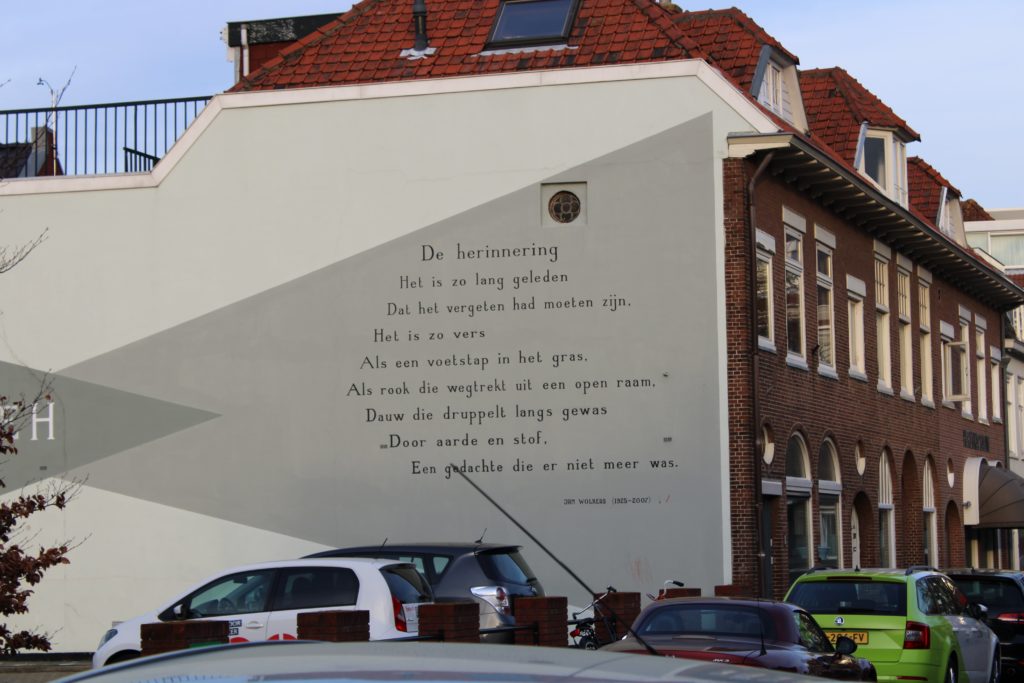 De herinnering
Het is zo lang geleden
Dat het vergeten had moeten zijn,
Het is zo vers
Als een voetstap in het gras,
Als rook die wegtrekt uit een open raam,
Dauw die druppelt langs gewas
Door aarde en stof,
Een gedachte die er niet meer was.
JAN WOLKERS (1925-2007)
EH